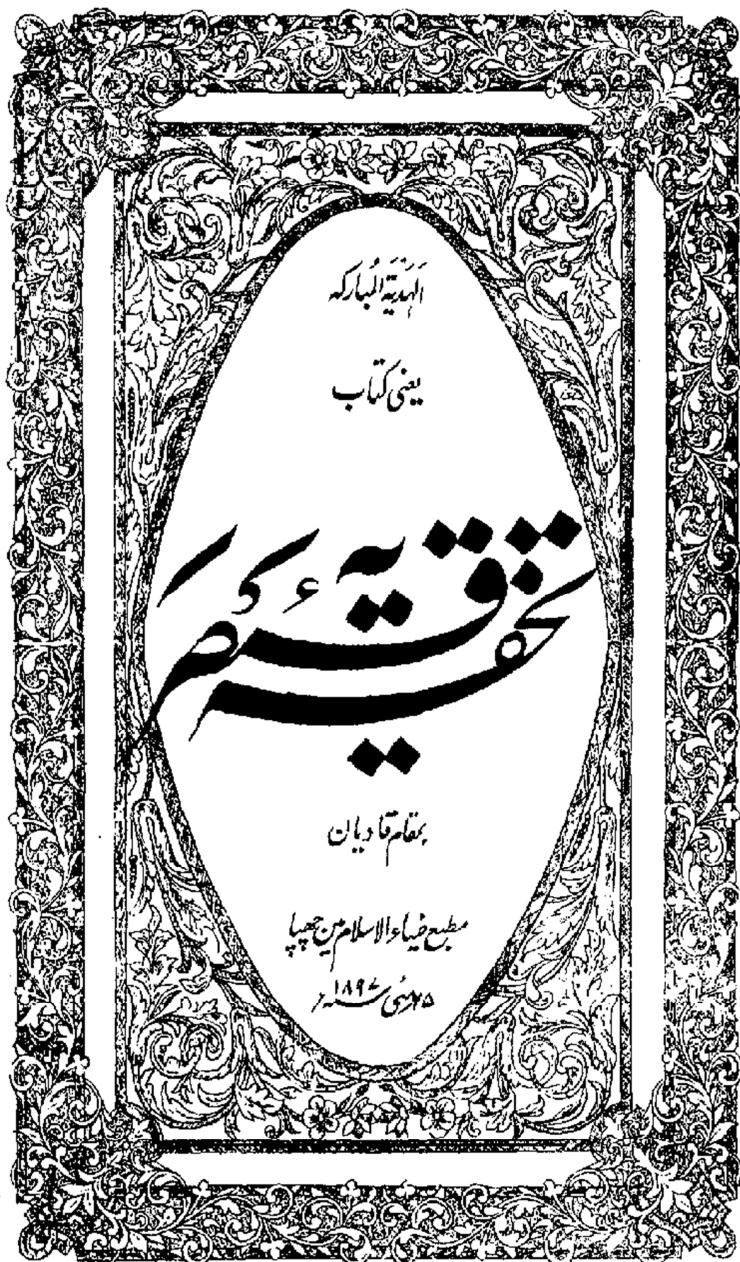 الهَدِيَّةُ المُبارکه
یعنی کتاب
تحفہ قیصریہ
بمقام قادیان
مطبع ضیاءالاسلام مین چھپا
۲۵ مئی ۱۸۹۷ء